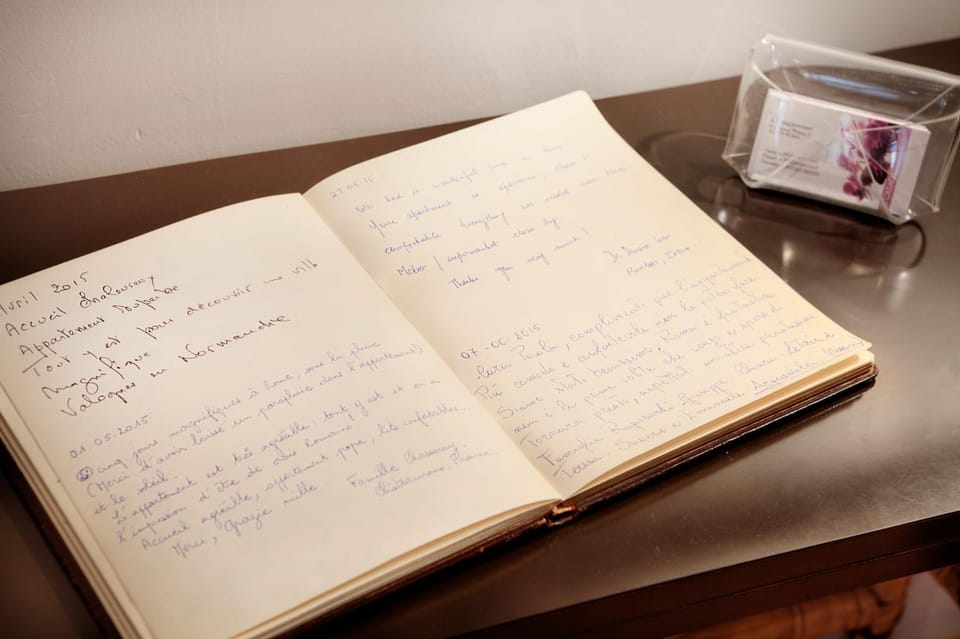 Avril 2015
Accueil Chaleureux
Appartement Superbe
Tout y est pour découvrir une ville
magnifique
Valognes en Normandie
01.05.2015
cinq jours magnifiques à Rome, sous la pluie
(Merci d'avoir laissé un parapluie dans l'appartement)
et le soleil.
L'appartement est très agréable. tout y est et on a
l'impression d'être de vrais Romains!
Accueil agréable, appartement propre, lits confortables...
Merci, grazie mille.
Famille Chasseray
Châteauroux, France
29.05.15
We had a wonderful time in Rome
Your apartment is spacious, clean &
comfortable. Everything we needed was there.
Metro / supermarket close by
Thank you very much!
07-06-2015
Cara Paola, complimenti per l'appartamento
Più comodo e confortevole non lo poteva fare.
Siamo stati benissimo, Roma è fantastica
non è la prima volta che venga
Torneremo presto, aspettati un'altra prenotazione
Famiglia Giuseppe Chiara
Teresa - Saverio e Emanuela